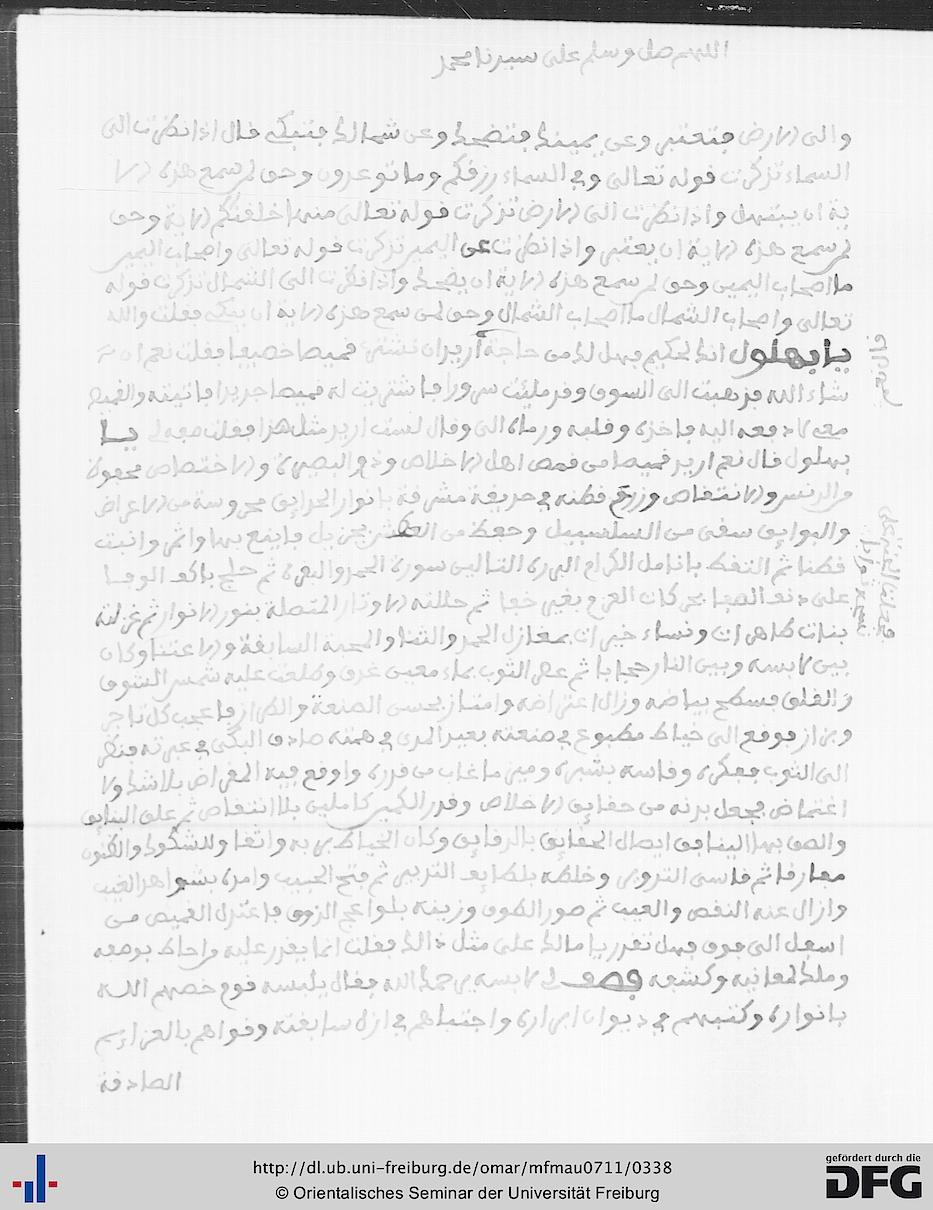 اللهم صل وسلم على سيدنا محمد
والى الارض فتعتبر وعن يمينك فتضحك وعن شمالك فتبكي فال اذا نظرت الى
السماء تذكرت قوله تعالى وفي السماء رزقكم وما توعدون وحق لمن سمع هذه الا
ية ان يبتهل واذا نظرت الى الارض تذكرت قوله تعالى منها خلقنكم الاية وحق
لمن سمع هذه الاية ان يعتبر واذا نظرت عن اليمين تذكرت قوله تعالى واصحاب اليمين
ما اصحاب اليمين وحق لمن سمع هذه الاية ان يضحك واذا نظرت الى الشمال تذكرت قوله
تعالى واصحاب الشمال ما اصحاب الشمال وحق لمن سمع هذه الاية ان يبكي فقلت والله
يا بهلول انك لحكيم فهل لك من حاجة اريد ان تشتري قميصا فقلت نعم ان
شاء الله فذهبت الى السوق وقد ملئت سرورا فاشتريت له قميصا جديدا فاتيته والقميص
معي لادفعه اليه فاخذه وقلبه ورماه الى وقال لست اريد مثل هذا فقلت يا
بهلول قال نعم اريد قميصا من قمص اهل الاخلاص والاختصاص
والدنس والانتقاص وزرع قطنه في حديقة مشرقة بانوار الحدايق محروسة من الاعراض
والبوايق سقي من السلسبيل وحفظ من فاينع واثمر وانبت
قطنا ثم التقط بانامل الكرام البررة التالين سورة الحمد والبقرة ثم حلج باكف الوفا
على بغير خفا ثم حللته الاوتار المتصلة بنور الانوار ثم غزلته
بنات طاهرات ونساء خيرات بمغازل الحمد والثنا والمحبة السابقة والاعتنا وكان
بين لابسه وبين النار حجابا ثم الثوب بماء معين غدق وطلعت عليه شمس الشوق
والقلق فسطع بياضه وزال اعتراضه وامتاز بحسن الصنعة والطراز فاعجب كل تاجر
وبزاز فوقع الى خياط مطبوع في صنعته بعيد المدى في همته صادق البكى في عبرته فنظر
الى الثوب بفكره وقاسه بشبره وميز ما غاب من قدره واوقع فيه المقراض بلا شك ولا
اغتماض فجعل بدنه من حقايق الاخلاص وقدر الكمين كاملين بلا انتقاص ثم على البنايق
والصق بها اليناق ايصال الحقايق بالرقايق وكان الخياط به واثقا وللشكوك والظنون
مفارقا ثم قاسى التدوير وخاطه بلطايف التدبير ثم فتح الجيب وامده بشواهد الغيب
وازال عنه النقص والعيب ثم صور الطوق وزينه بلواعج الذوق فاعتدل القميص من
اسفل الى فوق فهل تقدر يا مالك على مثل ذالك فقلت انما يقدر عليه من احاط بوصفه
وملك لمعانيه وكشفه فصف لي لابسه يرحمك الله فقال يلبسه قوم خصهم الله
بانواره وكتبهم في ديوان ابراره واجتباهم في ازله سابقته وقواهم بالعزايم
الصادقة
http://dl.ub.uni-freiburg.de/omar/mfmau0711/0338
© Orientalisches Seminar der Universität Freiburg
gefördert durch die
DFG